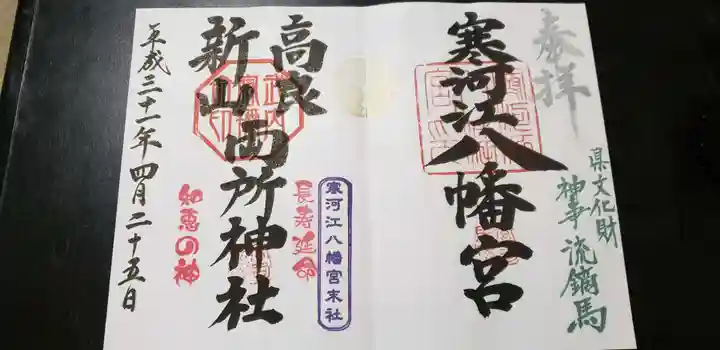 奉拝
県文化財
神事流鏑馬
寒河江八幡宮
寒河江八幡宮末社
長寿延命
高良
新山両所神社
知恵の神
平成三十一年四月二十五日